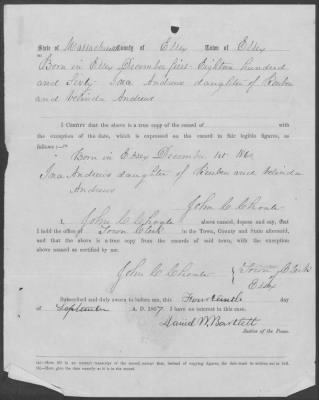 State of Massachusetts County of Essex Town of Essex
Born in Essex December first Eighteen hundred
and Sixty Ima Andrews daughter of Reuben
and velinda Andrews
I CERTIFY that the above is a true copy of the record of with
the exception of the date, which is expressed on the record in fair legible figures, as
follows :—
Born in Essex December 1st 1860
Ima Andrews daughter of Reuben and velinda
Andrews
John C Choate
I, John C Choate above named, depose and say, that
I hold the office of Town Clerk in the Town, County and State aforesaid,
and that the above is a true copy from the records of said town, with the exception
above named as certified by me.
John C Choate Town Clerk
Essex
Subscribed and duly sworn to before me, this Fourteenth day
of September A. D. 1867 I have no interest in this case.
David W. Bartlett
Justice of the Peace.